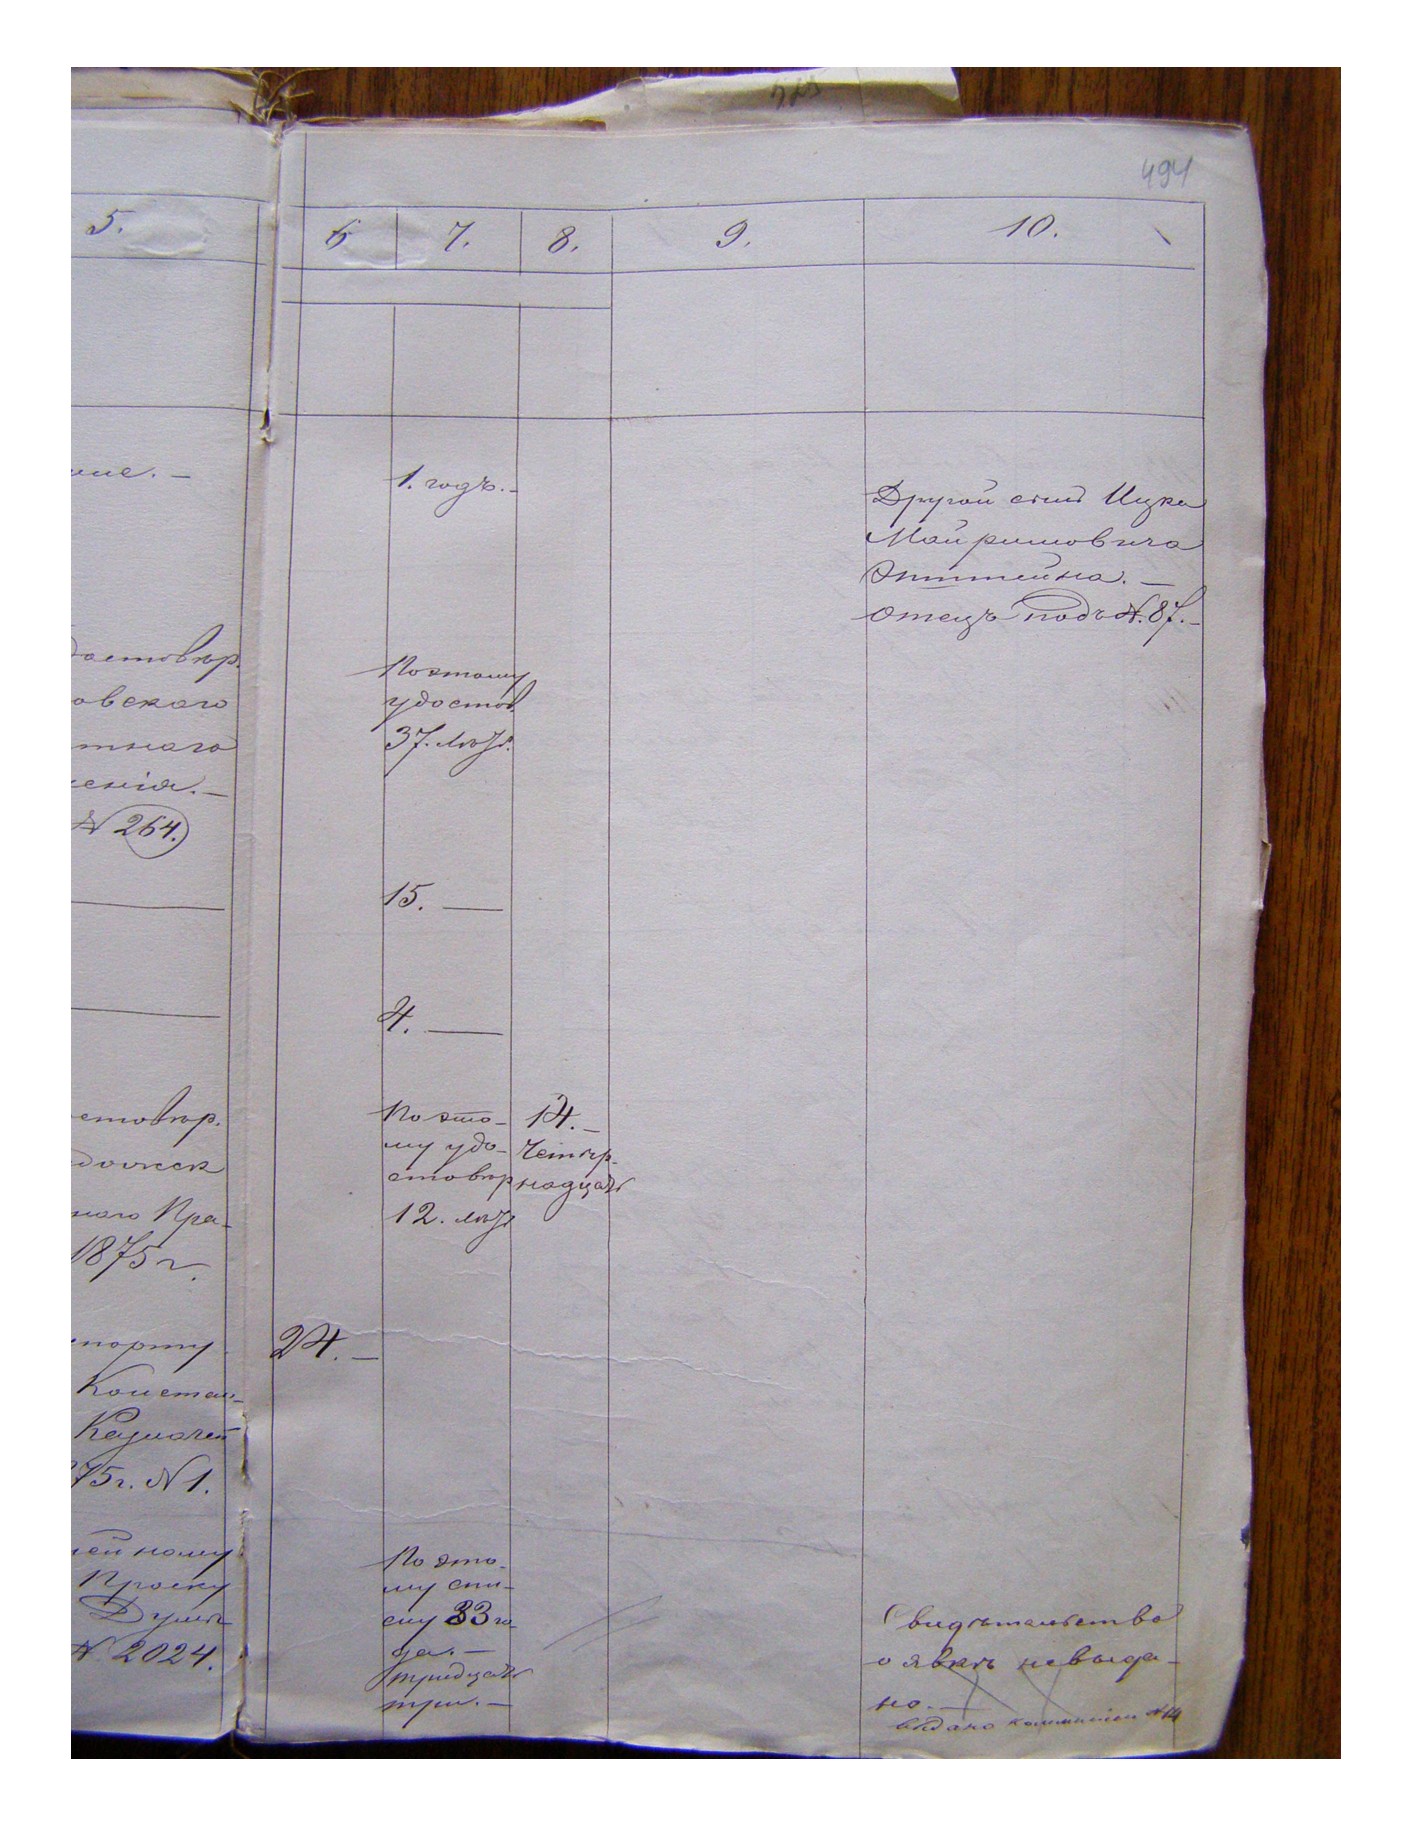 494
5. 6 7. 8. 9. 10.
1. годъ. –
Другой сынъ Ицка
Маймовича
Эпштейна. –
Отецъ подъ N. 87. –
достовѣр.
овскаго
тнаго
ченія. –
N 264.
По этому
удостов.
37. лѣтъ.
15. —
4. —
стовѣр.
наго Пра-
1875 г.
По это-
му удо-
стовѣр
12. лѣтъ
14. –
Четыр-
надцать
24. –
спорту
Констан-
Казначей
75 г. N 1.
ейному
Списку
Думы
N 2024.
По это-
му спи-
ску 33 го-
да. –
тридцать
три. –
Свидѣтельство
о явкѣ не выда-
но. –
выдано